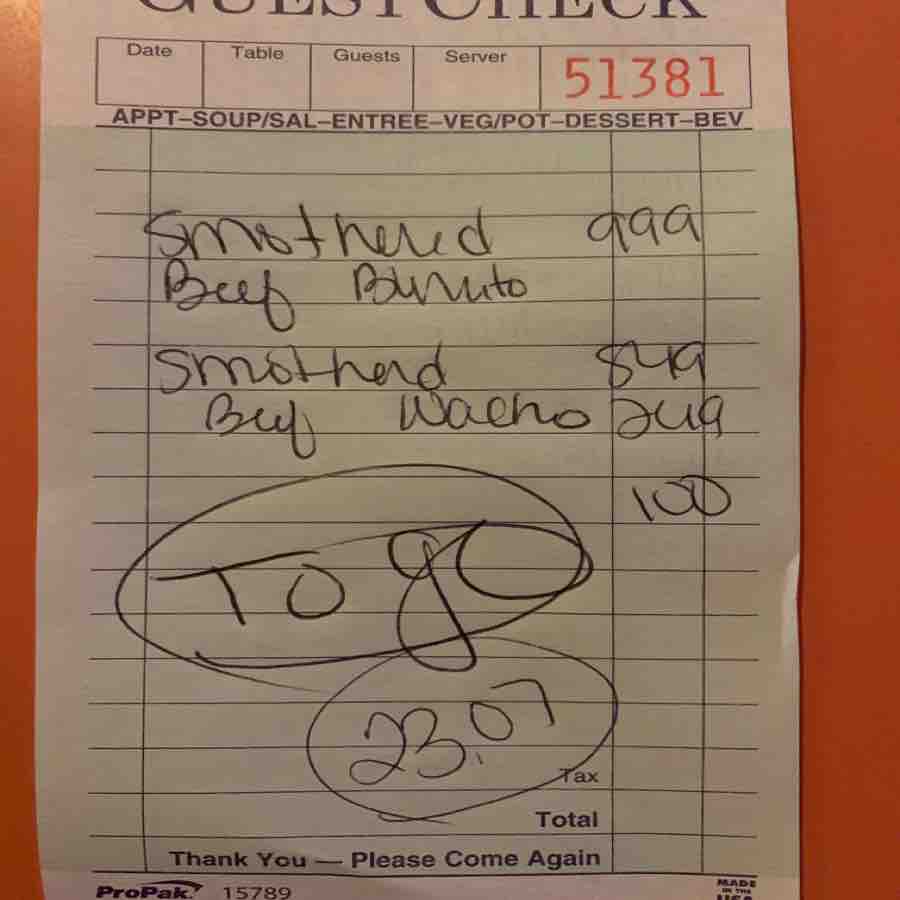 GUEST CHECK
Date Table Guests Server 51381
APPT–SOUP/SAL–ENTREE–VEG/POT–DESSERT–BEV
Smothered 999
Beef Burrito
Smotherd 849
Beef Nacho 249
100
To go
23.07
Tax
Total
Thank You — Please Come Again
ProPak 15789
MADE
IN THE
USA